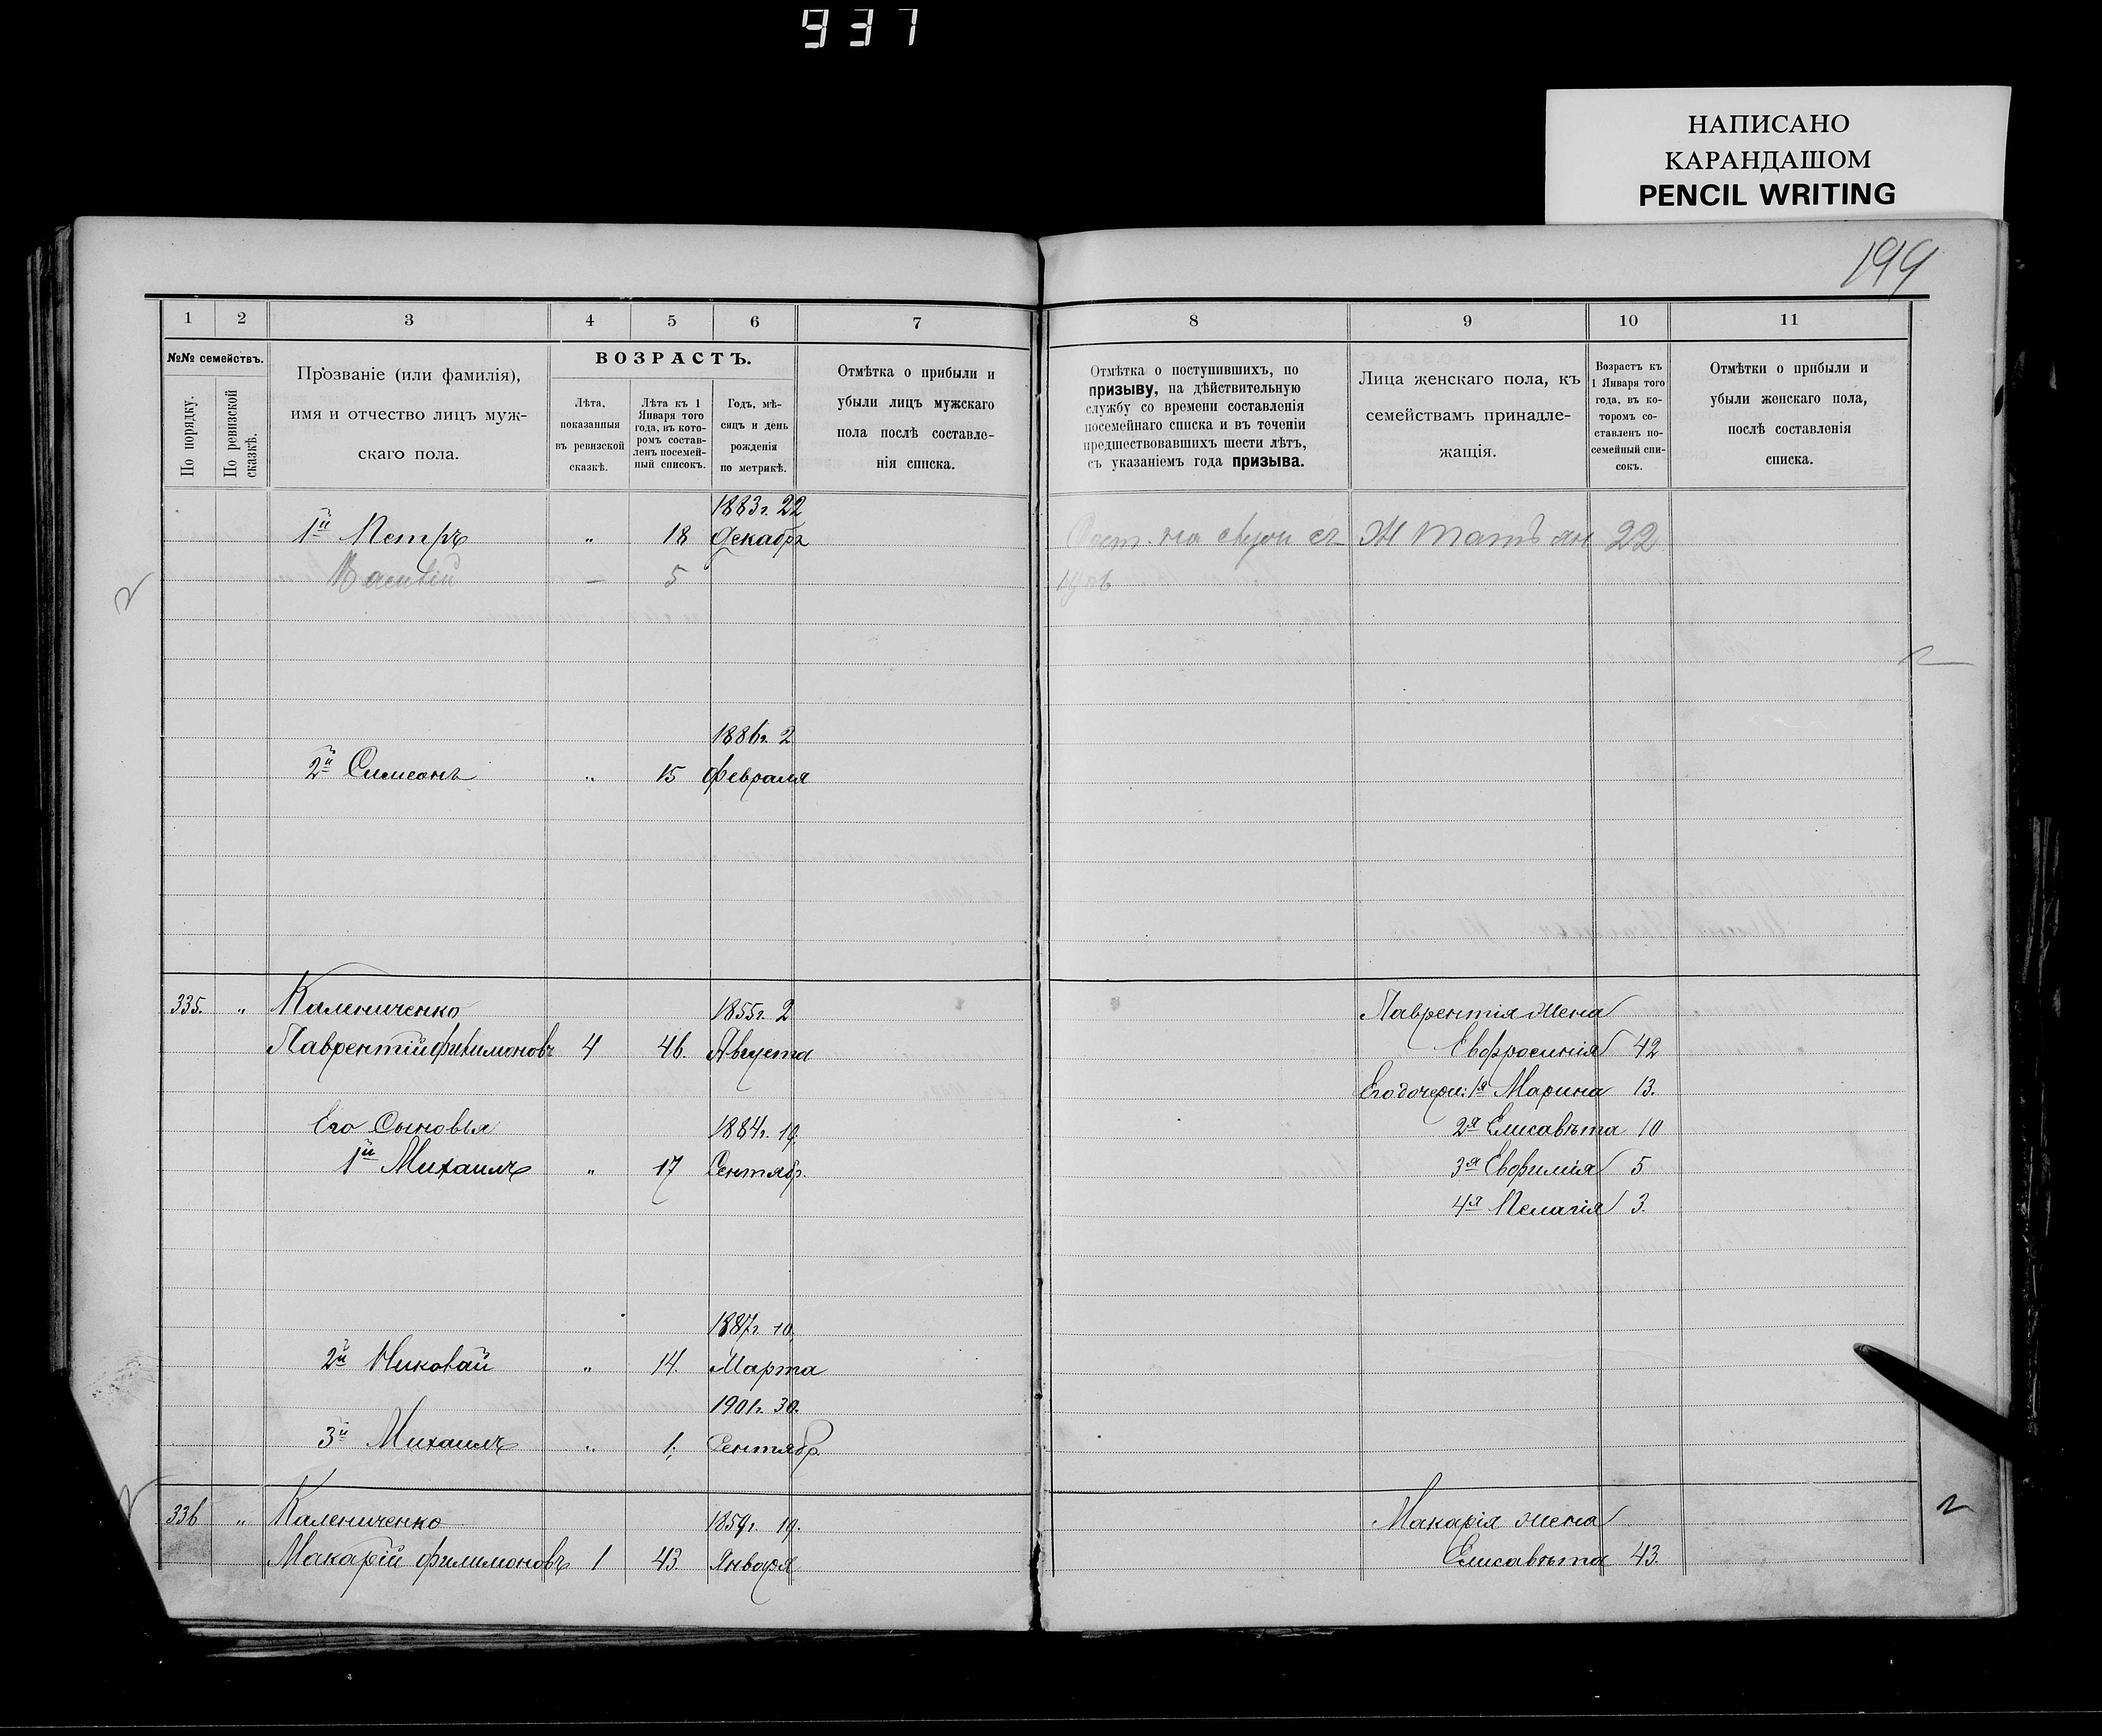 937
НАПИСАНО
КАРАНДАШОМ
PENCIL WRITING
199
1 2 3 4 5 6 7 8 9 10 11
№№ семействъ.
По порядку.
По ревизской сказкѣ.
Прозваніе (или фамилія),
имя и отчество лицъ муж-
скаго пола.
ВОЗРАСТЪ.
Лѣта,
показанныя
въ ревизской
сказкѣ.
Лѣта къ 1
Января того
года, въ кото-
ромъ состав-
ленъ посемей-
ный списокъ.
Годъ, мѣ-
сяцъ и день
рожденія
по метрикѣ.
Отмѣтка о прибыли и
убыли лицъ мужскаго
пола послѣ составле-
нія списка.
Отмѣтка о поступившихъ, по
призыву, на дѣйствительную
службу со времени составленія
посемейнаго списка и въ теченіи
предшествовавшихъ шести лѣтъ,
съ указаніемъ года призыва.
Лица женскаго пола, къ
семействамъ принадле-
жащія.
Возрастъ къ
1 Января того
года, въ ко-
торомъ со-
ставленъ по-
семейный спи-
сокъ.
Отмѣтки о прибыли и
убыли женскаго пола,
послѣ составленія
списка.
1883г. 22
1й Петръ " 18 Декабр. Ж 22
— 5 1906
1886г. 2
2й Симеонъ " 15 февраля
335. " Калениченко 1855г. 2 Лаврентія жена
Лаврентій филимоновъ 4 46. Августа Евфросинія 42
Его дочери: 1я Марина 13.
Его Сыновья 1884г. 19. 2я Елисавѣта 10
1й Михаилъ " 17 Сентябр. 3я Евфимія 5
4я Пелагія 3.
1887г. 10.
2й Николай " 14. Марта
1901г. 30.
3й Михаилъ " 1. Сентябр.
336 " Калениченко 1859г. 19. Макарія жена
Макарій филимоновъ 1 43. Января Елисавѣта 43.